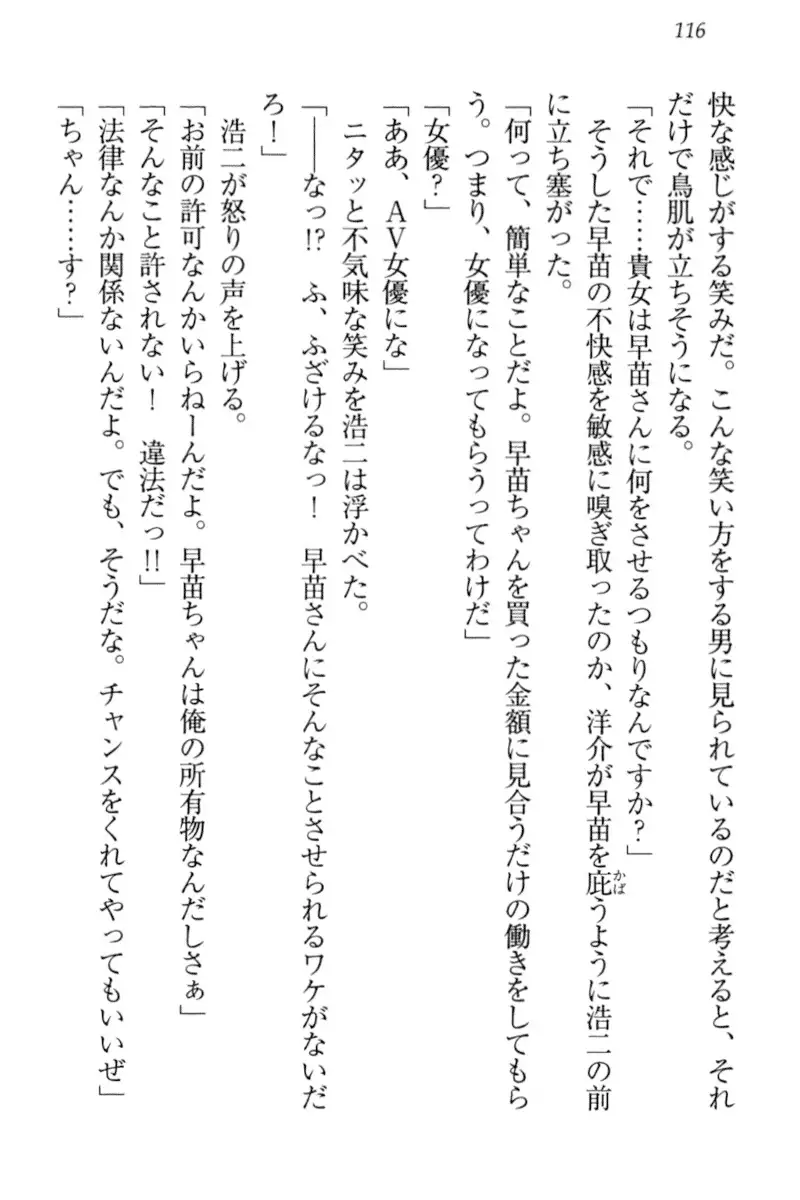 116
快な感じがする笑みだ。こんな笑い方をする男に見られているのだと考えると、それ
だけで鳥肌が立ちそうになる。
「それで……貴女は早苗さんに何をさせるつもりなんですか?」
そうした早苗の不快感を敏感に嗅ぎ取ったのか、洋介が早苗を庇うように浩二の前
かば
に立ち塞がった。
「何って、簡単なことだよ。早苗ちゃんを買った金額に見合うだけの働きをしてもら
う。つまり、女優になってもらうってわけだ」
「女優?」
「ああ、AV女優にな」
ニタッと不気味な笑みを浩二は浮かべた。
「――なっ!? ふ、ふざけるなっ! 早苗さんにそんなことさせられるワケがないだ
ろ!」
浩二が怒りの声を上げる。
「お前の許可なんかいらねーんだよ。早苗ちゃんは俺の所有物なんだしさぁ」
「そんなこと許されない! 違法だっ!!」
「法律なんか関係ないんだよ。でも、そうだな。チャンスをくれてやってもいいぜ」
「ちゃん……す?」